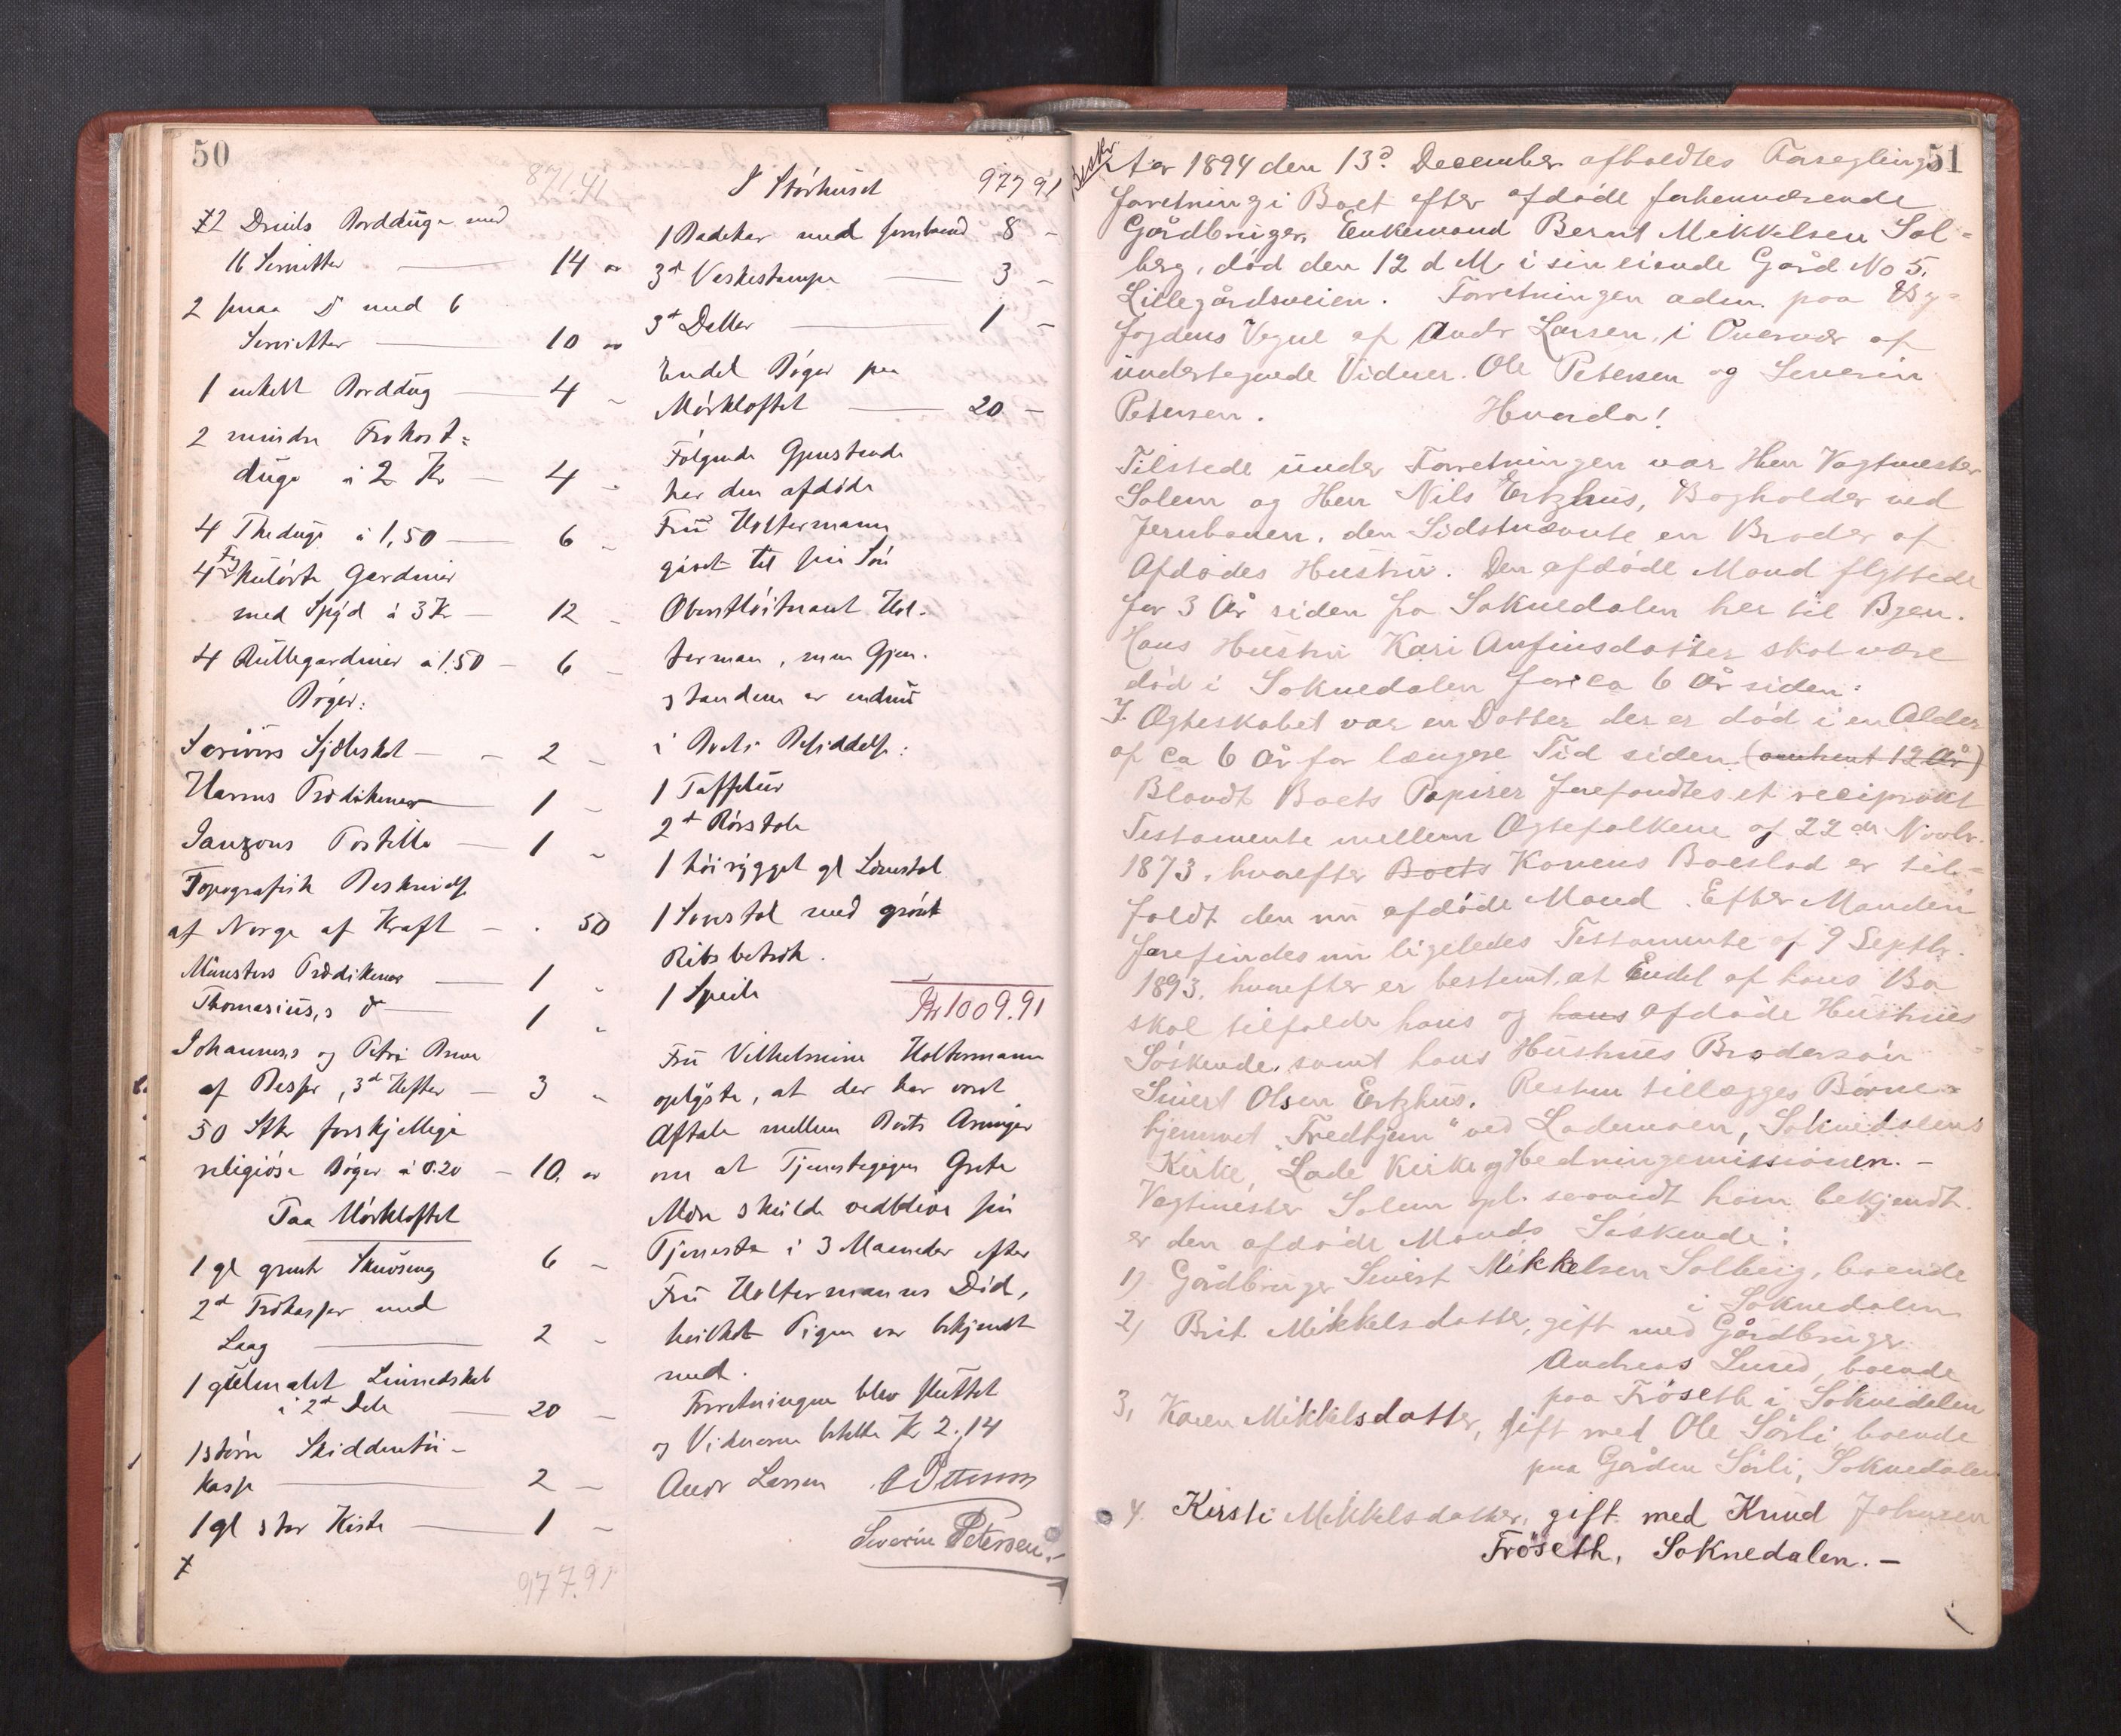 50
871.41
12 Dreils Borddüge med
16 Servietter — 14 "
2 smaa D med 6
Servietter — 10 "
1 enkelt Borddüg — 4 "
2 mindre Frokost=
düge à 2 Kr — 4 "
4 Thedüge à 1,50 — 6 "
4 Fg külörte Gardiner
med Spyd à 3 Kr — 12 "
4 Rüllegardiner a 1.50 — 6 "
Bøger:
Scrivers Sjæleskat — 2 "
Harms Prædikener — 1 "
Postille — 1 "
Topografisk Beskrivelse
af Norge af Kraft — . 50
Münsters Prædikener — 1 "
Thomasius,s do — 1 "
Johannes,s og Petri Breve
af Besser, 3d Hefter — 3 "
50 Stkr forskjellige
religiöse Böger à 0.20 — 10. "
Paa Mörkloftet
1 gl grønt 6 "
2d med
Laag — 2 "
1 gülmalet Linnedskab
i 2d Dele — 20 "
1 større Skiddentöi-
kasse — 2 "
1 gl stor Kiste — 1 "
977.91
I Störhuset 977 91
1 Badekar med Jernbaand 8 -
3d Vaskestamper — 3 -
3d Daller — 1 -
Endel Böger paa
Mörkloftet — 20 -
Følgende Gjenstande
har den afdöde
Frü Holtermann
givet til sin Sön
Oberstlöitnant Hol-
terman, som Gjen-
standene er endnü
i Boets Besiddelse:
1 Taffelür
2d Rörstole
1 höirygget gl Lænestol
1 Lænestol med grönt
Ribsbetræk.
1 Speile
Kr 1009.91
Frü Vilhelmine Holtermann
oplyste, at der har været
Aftale mellem Boets Arvinger
om at Tjenestepigen Grete
Moen skülde vedblive sin
Tjeneste i 3 Maaneder efter
Frü Holtermanns Död,
hvilket Pigen var bekjendt
med.
Forretningen blev slüttet
og Vidnerne betalte Kr 2.14
Andr Larsen O Petersen
Severin Petersen.
51
Beskr
Aar 1894 den 13d December afholdtes Forseglings
forretning i Boet efter afdöde forhenværende
Gårdbruger, Enkemand Bernt Mikkelsen Sol=
berg, död den 12 d M i sin eiende Gård No 5,
Lillegårdsveien. Forretningen adm. paa By=
fogdens Vegne af Andr Larsen, i Overvær af
undertegnede Vidner. Ole Petersen og Severin
Petersen. Hvorda!
Tilstede ünder Forretningen var Herr Vagtmester
Solem og Herr Nils Ertzhus, Bogholder ved
Jernbanen, den Sidstnævnte en Broder af
Afdödes Hustru. Den afdöde Mand flyttede
for 3 År siden fra Soknedalen her til Byen.
Hans Hustru Kari Anfinsdatter skal være
död i Soknedalen for ca 6 År siden:
I Ægteskabet var en Datter der er död i en Alder
af ca 6 År for længere Tid siden (omtrent 12 År)
Blandt Boets Papirer forefandtes et reciprokt
Testamente mellem Ægtefolkene af 22de Novbr.
1873, hvorefter Boets Konens Boeslod er til-
faldt den nü afdöde Mand. Efter Manden
forefindes nü ligeledes Testamente af 9 Septbr.
1893, hvorefter er bestemt, at Endel af hans Bo
skal tilfalde hans og hans afdöde Hustrues
Söskende, samt hans Hustrues Brodersön
Sivert Olsen Ertzhus. Resten tillægges Börne=
hjemmet "Fredhjem" ved Lademoen, Soknedalens
Kirke, Lade Kirke og Hedningemissionen. -
Vagtmester Solem opl. saavidt ham bekjendt
er den afdöde Mands Söskende:
1) Gårdbruger Sivert Mikkelsen Solberg, boende
i Soknedalen
2) Brit Mikkelsdatter, gift med Gårdbruger
Andreas Lund, boende
paa Fröseth i Soknedalen
3, Karen Mikkelsdatter, gift med Ole Sörli, boende
paa Gården Sörli, Soknedalen
4. Kirsti Mikkelsdatter, gift med Knud Johnsen
Fröseth, Soknedalen. -